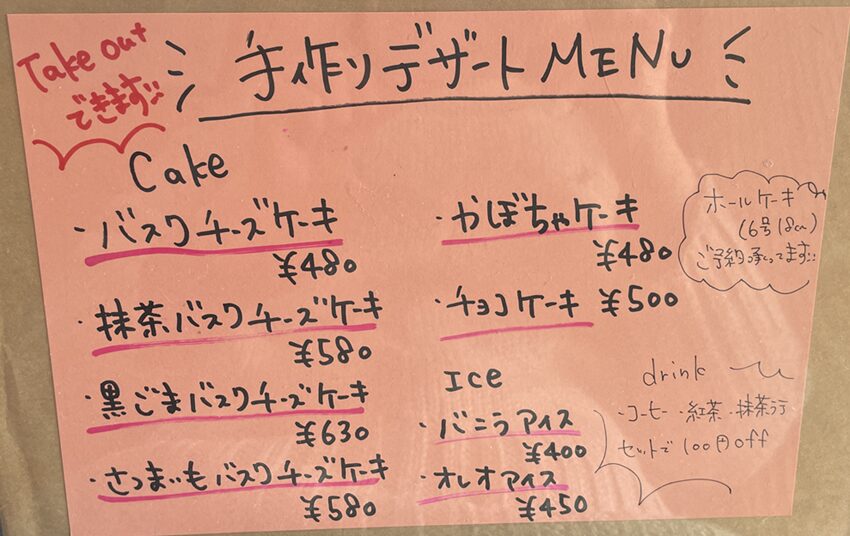 Take out
できます
手作りデザートMENU
Cake
・バスクチーズケーキ
¥480
・抹茶バスクチーズケーキ
¥580
・黒ごまバスクチーズケーキ
¥630
・さつまいもバスクチーズケーキ
¥580
・かぼちゃケーキ
¥480
・チョコケーキ ¥500
Ice
・バニラアイス
¥400
・オレオアイス
¥450
ホールケーキ
(6号18cm)
ご予約承ってます
drink
・コーヒー・紅茶・抹茶ラテ
セットで100円off